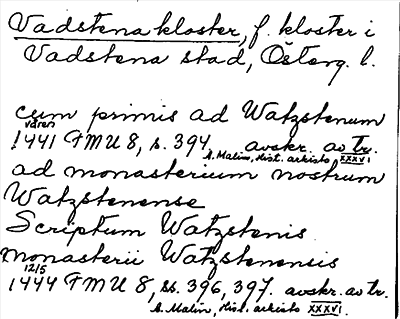 Vadstena kloster, f. kloster i
Vadstena stad, Österg. l.
cum primis ad Watzstenum
våren
1441 FMU 8, s. 394. avskr. av tr.
A. Malin, Hist. arkisto XXXVI
ad monasterium nostrum
Watzstenense
Scriptum Watzstenis
monasterii Watzstenensis
12/5
1444 FMU 8, ss. 396, 397. avskr. av tr.
A. Malin, Hist. arkisto XXXVI.